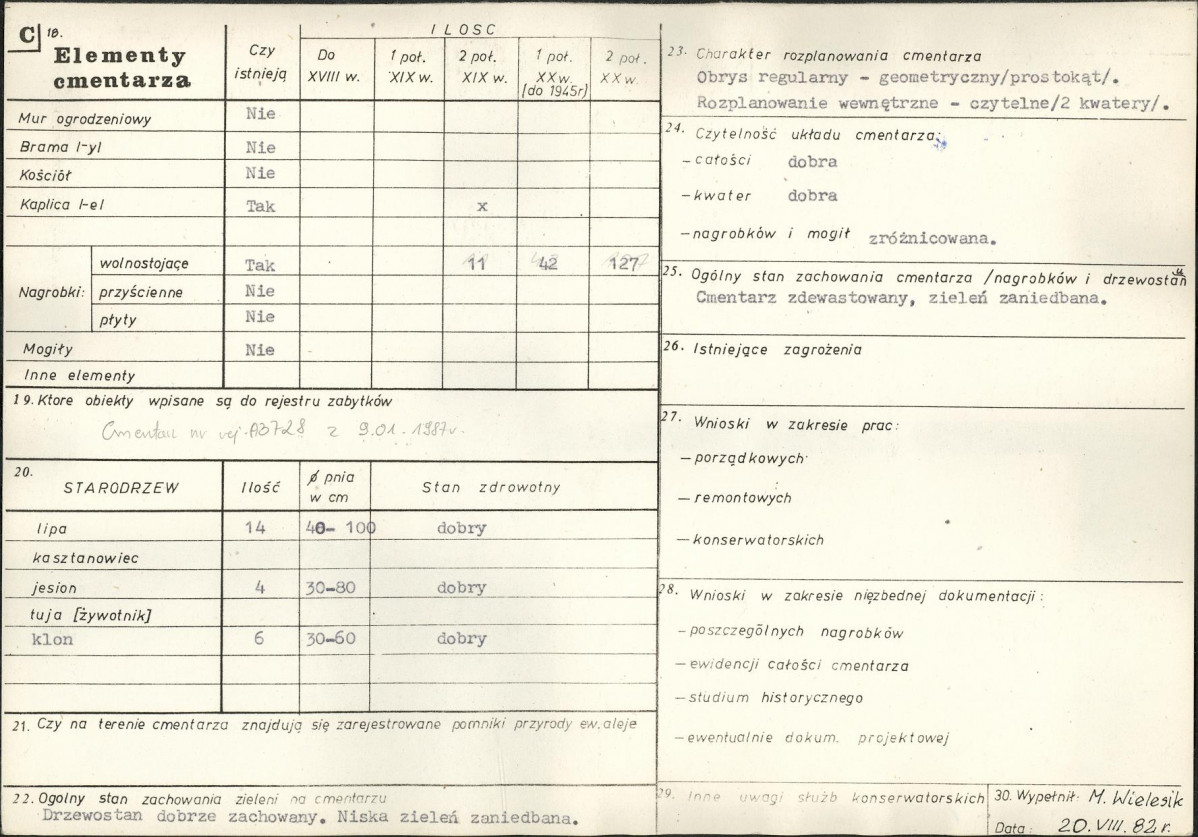 C 18.
Elementy
cmentarza
Czy
istnieją
ILOSC
Do
XVIII w.
1 poł.
XIX w.
2 poł.
XIX w.
1 poł.
XX w.
(do 1945r)
2 poł.
XX w.
Mur ogrodzeniowy Nie
Brama /-y/ Nie
Kościół Nie
Kaplica /-e/ Tak x
Nagrobki:
wolnostojące Tak 11 42 127
przyścienne Nie
płyty Nie
Mogiły Nie
Inne elementy
19. Ktore obiekty wpisane są do rejestru zabytków
Cmentarz nr rej. A3728 z 9.01.1987r.
20.
STARODRZEW Ilość ø pnia
w cm Stan zdrowotny
lipa 14 40- 100 dobry
kasztanowiec
jesion 4 30-80 dobry
tuja [żywotnik]
klon 6 30-60 dobry
21. Czy na terenie cmentarza znajdują się zarejestrowane pomniki przyrody ew. aleje
22. Ogolny stan zachowania zieleni na cmentarzu
Drzewostan dobrze zachowany. Niska zieleń zaniedbana.
23. Charakter rozplanowania cmentarza
Obrys regularny - geometryczny/prostokąt/.
Rozplanowanie wewnętrzne - czytelne/2 kwatery/.
24. Czytelność układu cmentarza:
- całości dobra
- kwater dobra
- nagrobków i mogił zróżnicowana.
25. Ogólny stan zachowania cmentarza /nagrobków i drzewostanu
Cmentarz zdewastowany, zieleń zaniedbana.
26. Istniejące zagrożenia
27. Wnioski w zakresie prac:
- porządkowych
- remontowych
- konserwatorskich
28. Wnioski w zakresie niezbednej dokumentacji:
- poszczególnych nagrobków
- ewidencji całości cmentarza
- studium historycznego
- ewentualnie dokum. projektowej
29. Inne uwagi służb konserwatorskich
30. Wypełnił: M. Wielesik
Data: 20.VIII.82r.